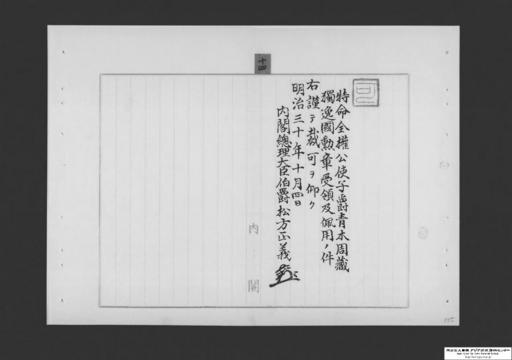 特命全權公使子爵青木周藏
獨逸國勲章受領及佩用ノ件
右謹テ裁可ヲ仰ク
明治三十年十月四日
內閣總理大臣伯爵松方正義
內閣
十四